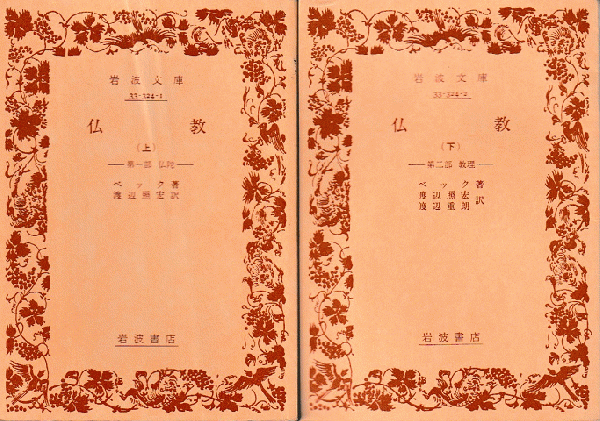 岩波文庫
33-324-1
仏教
(上)
—第一部 仏陀—
ベック著
渡辺照宏訳
岩波書店
岩波文庫
33-324-2
仏教
(下)
—第二部 教理—
ベック著
渡辺照宏
渡辺重朗訳
岩波書店